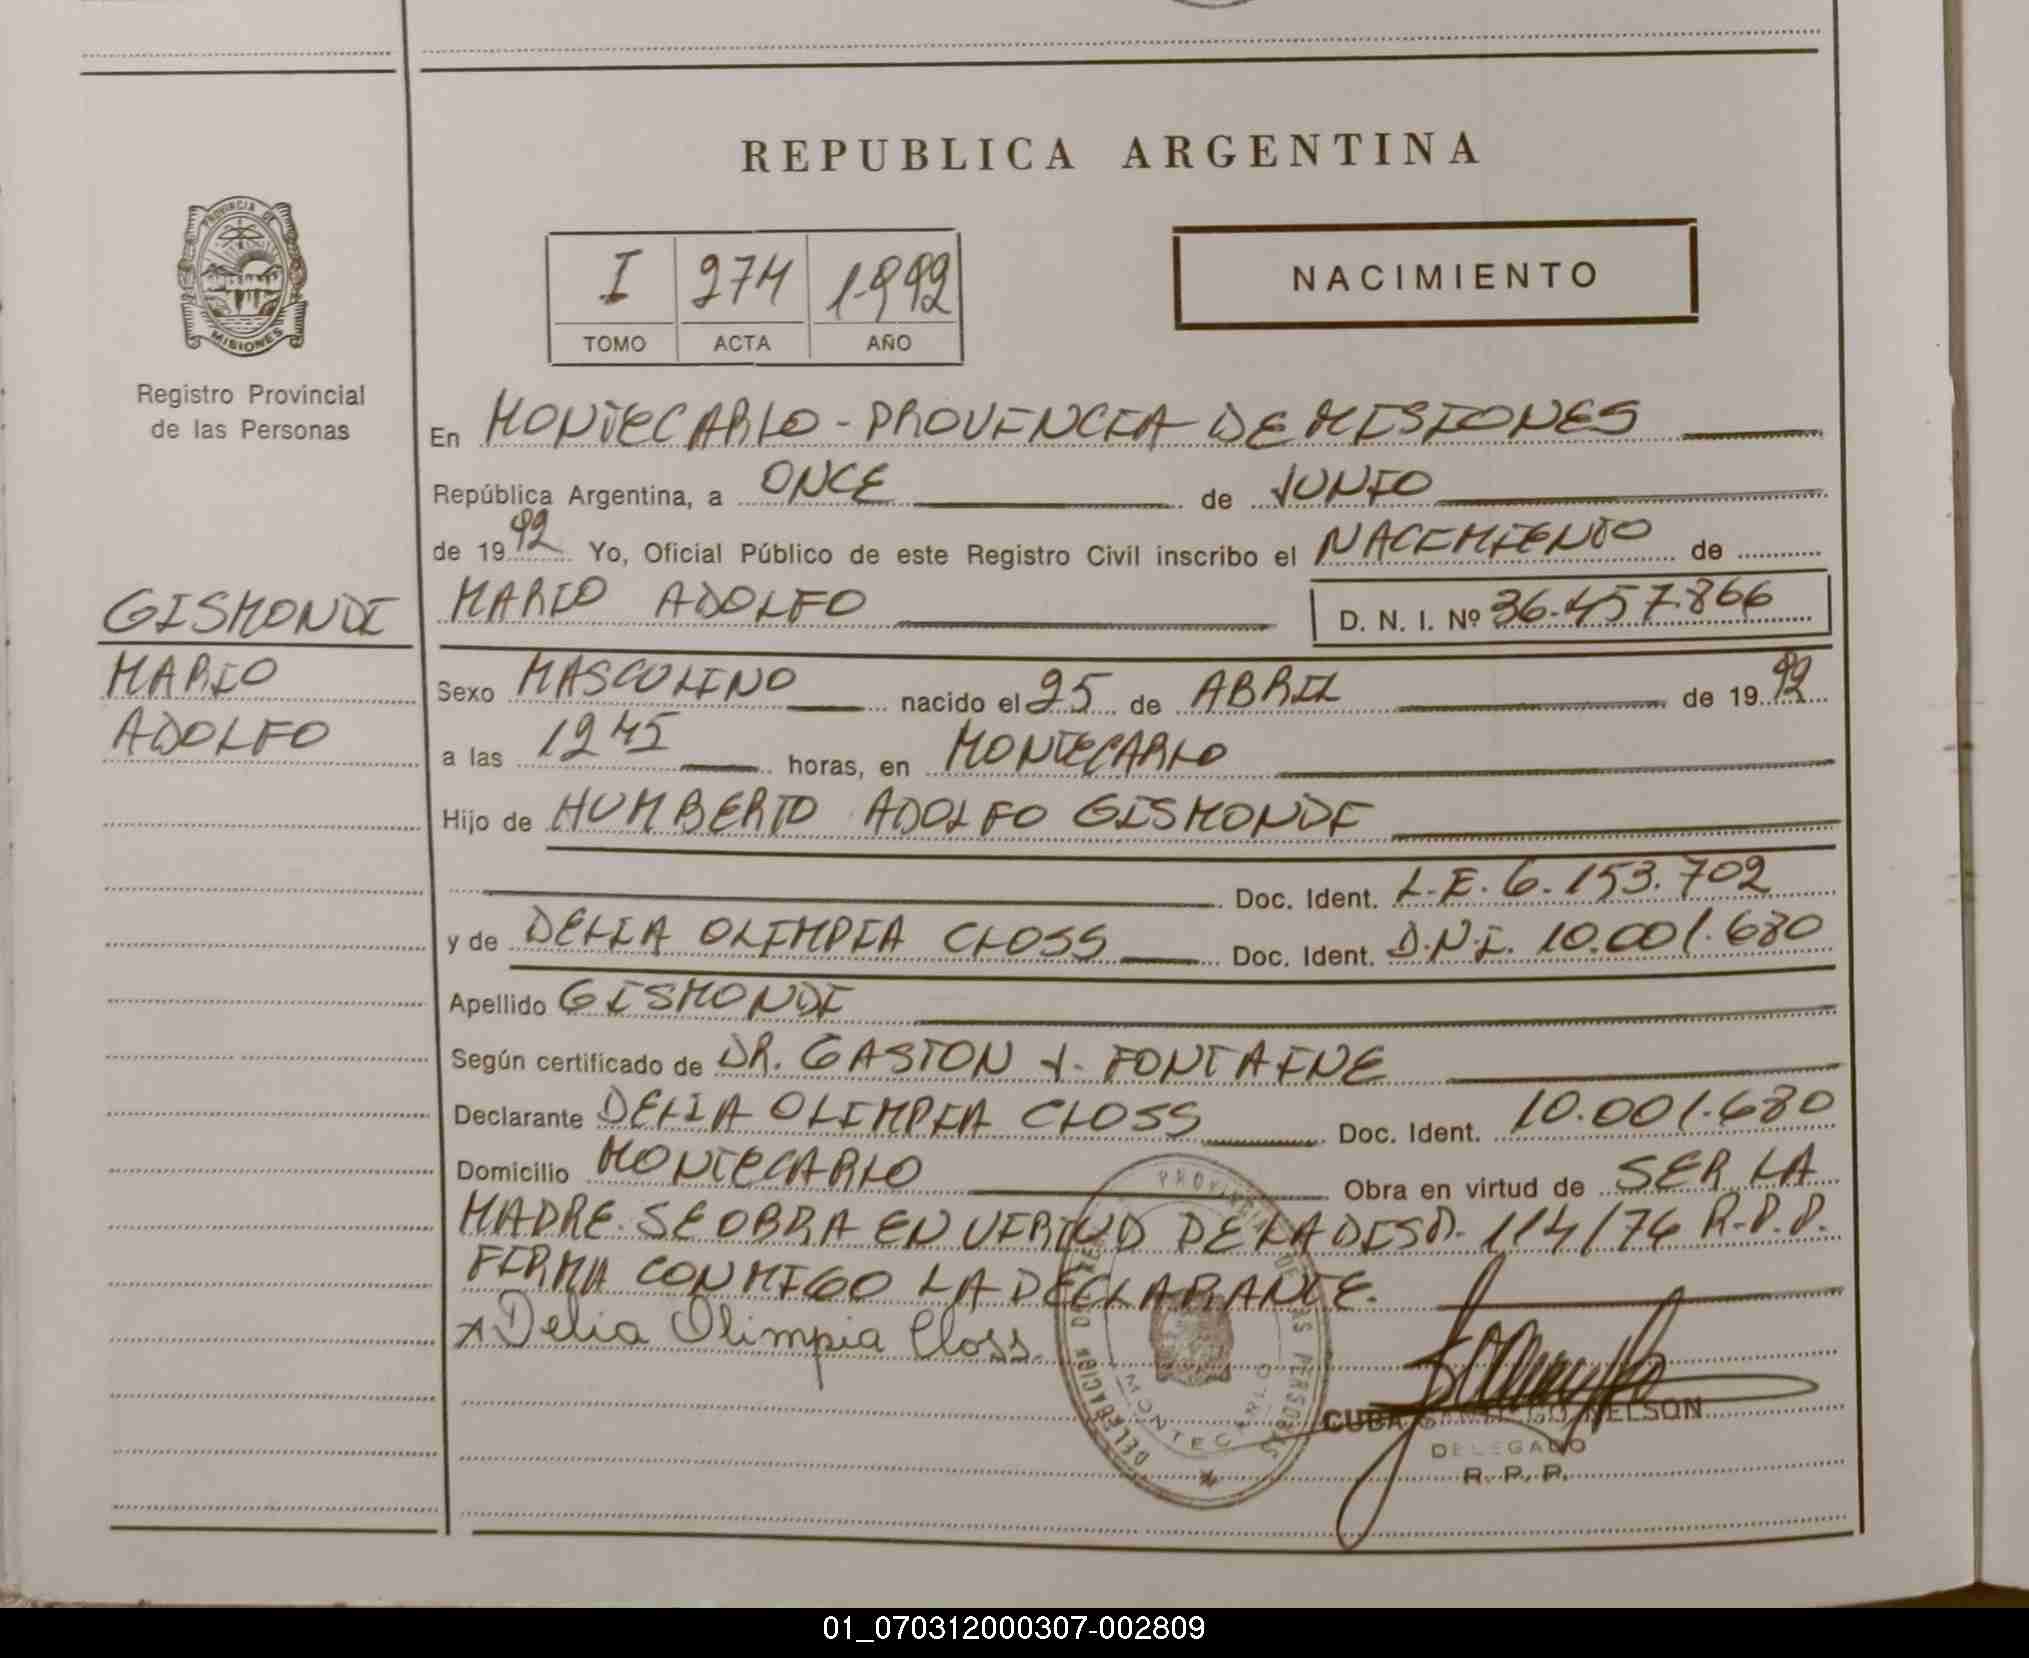 REPUBLICA ARGENTINA
PROVINCIA DE
MISIONES
Registro Provincial
de las Personas
I 274 1992
TOMO ACTA AÑO
NACIMIENTO
En MONTECARLO - PROVINCIA DE MISIONES
República Argentina, a ONCE de JUNIO
de 1992 Yo, Oficial Público de este Registro Civil inscribo el NACIMIENTO de
GISMONDI
MARIO ADOLFO D. N. I. Nº 36.457.866
MARIO
ADOLFO
Sexo MASCULINO nacido el 25 de ABRIL de 1992
a las 1245 horas, en MONTECARLO
Hijo de HUMBERTO ADOLFO GISMONDI
Doc. Ident. L.E. 6.153.702
y de DELIA OLIMPIA CLOSS Doc. Ident. D.N.I. 10.001.680
Apellido GISMONDI
Según certificado de DR. GASTON J. FONTAINE
Declarante DELIA OLIMPIA CLOSS Doc. Ident. 10.001.680
Domicilio MONTECARLO Obra en virtud de SER LA
MADRE. SE OBRA EN VIRTUD DE LA DISP. 114/76 R.P.P.
FIRMA CONMIGO LA DECLARANTE.
x Delia Olimpia Closs.
MONTECARLO
CUBA NELSON
DELEGADO
R. P. P.
01_070312000307-002809